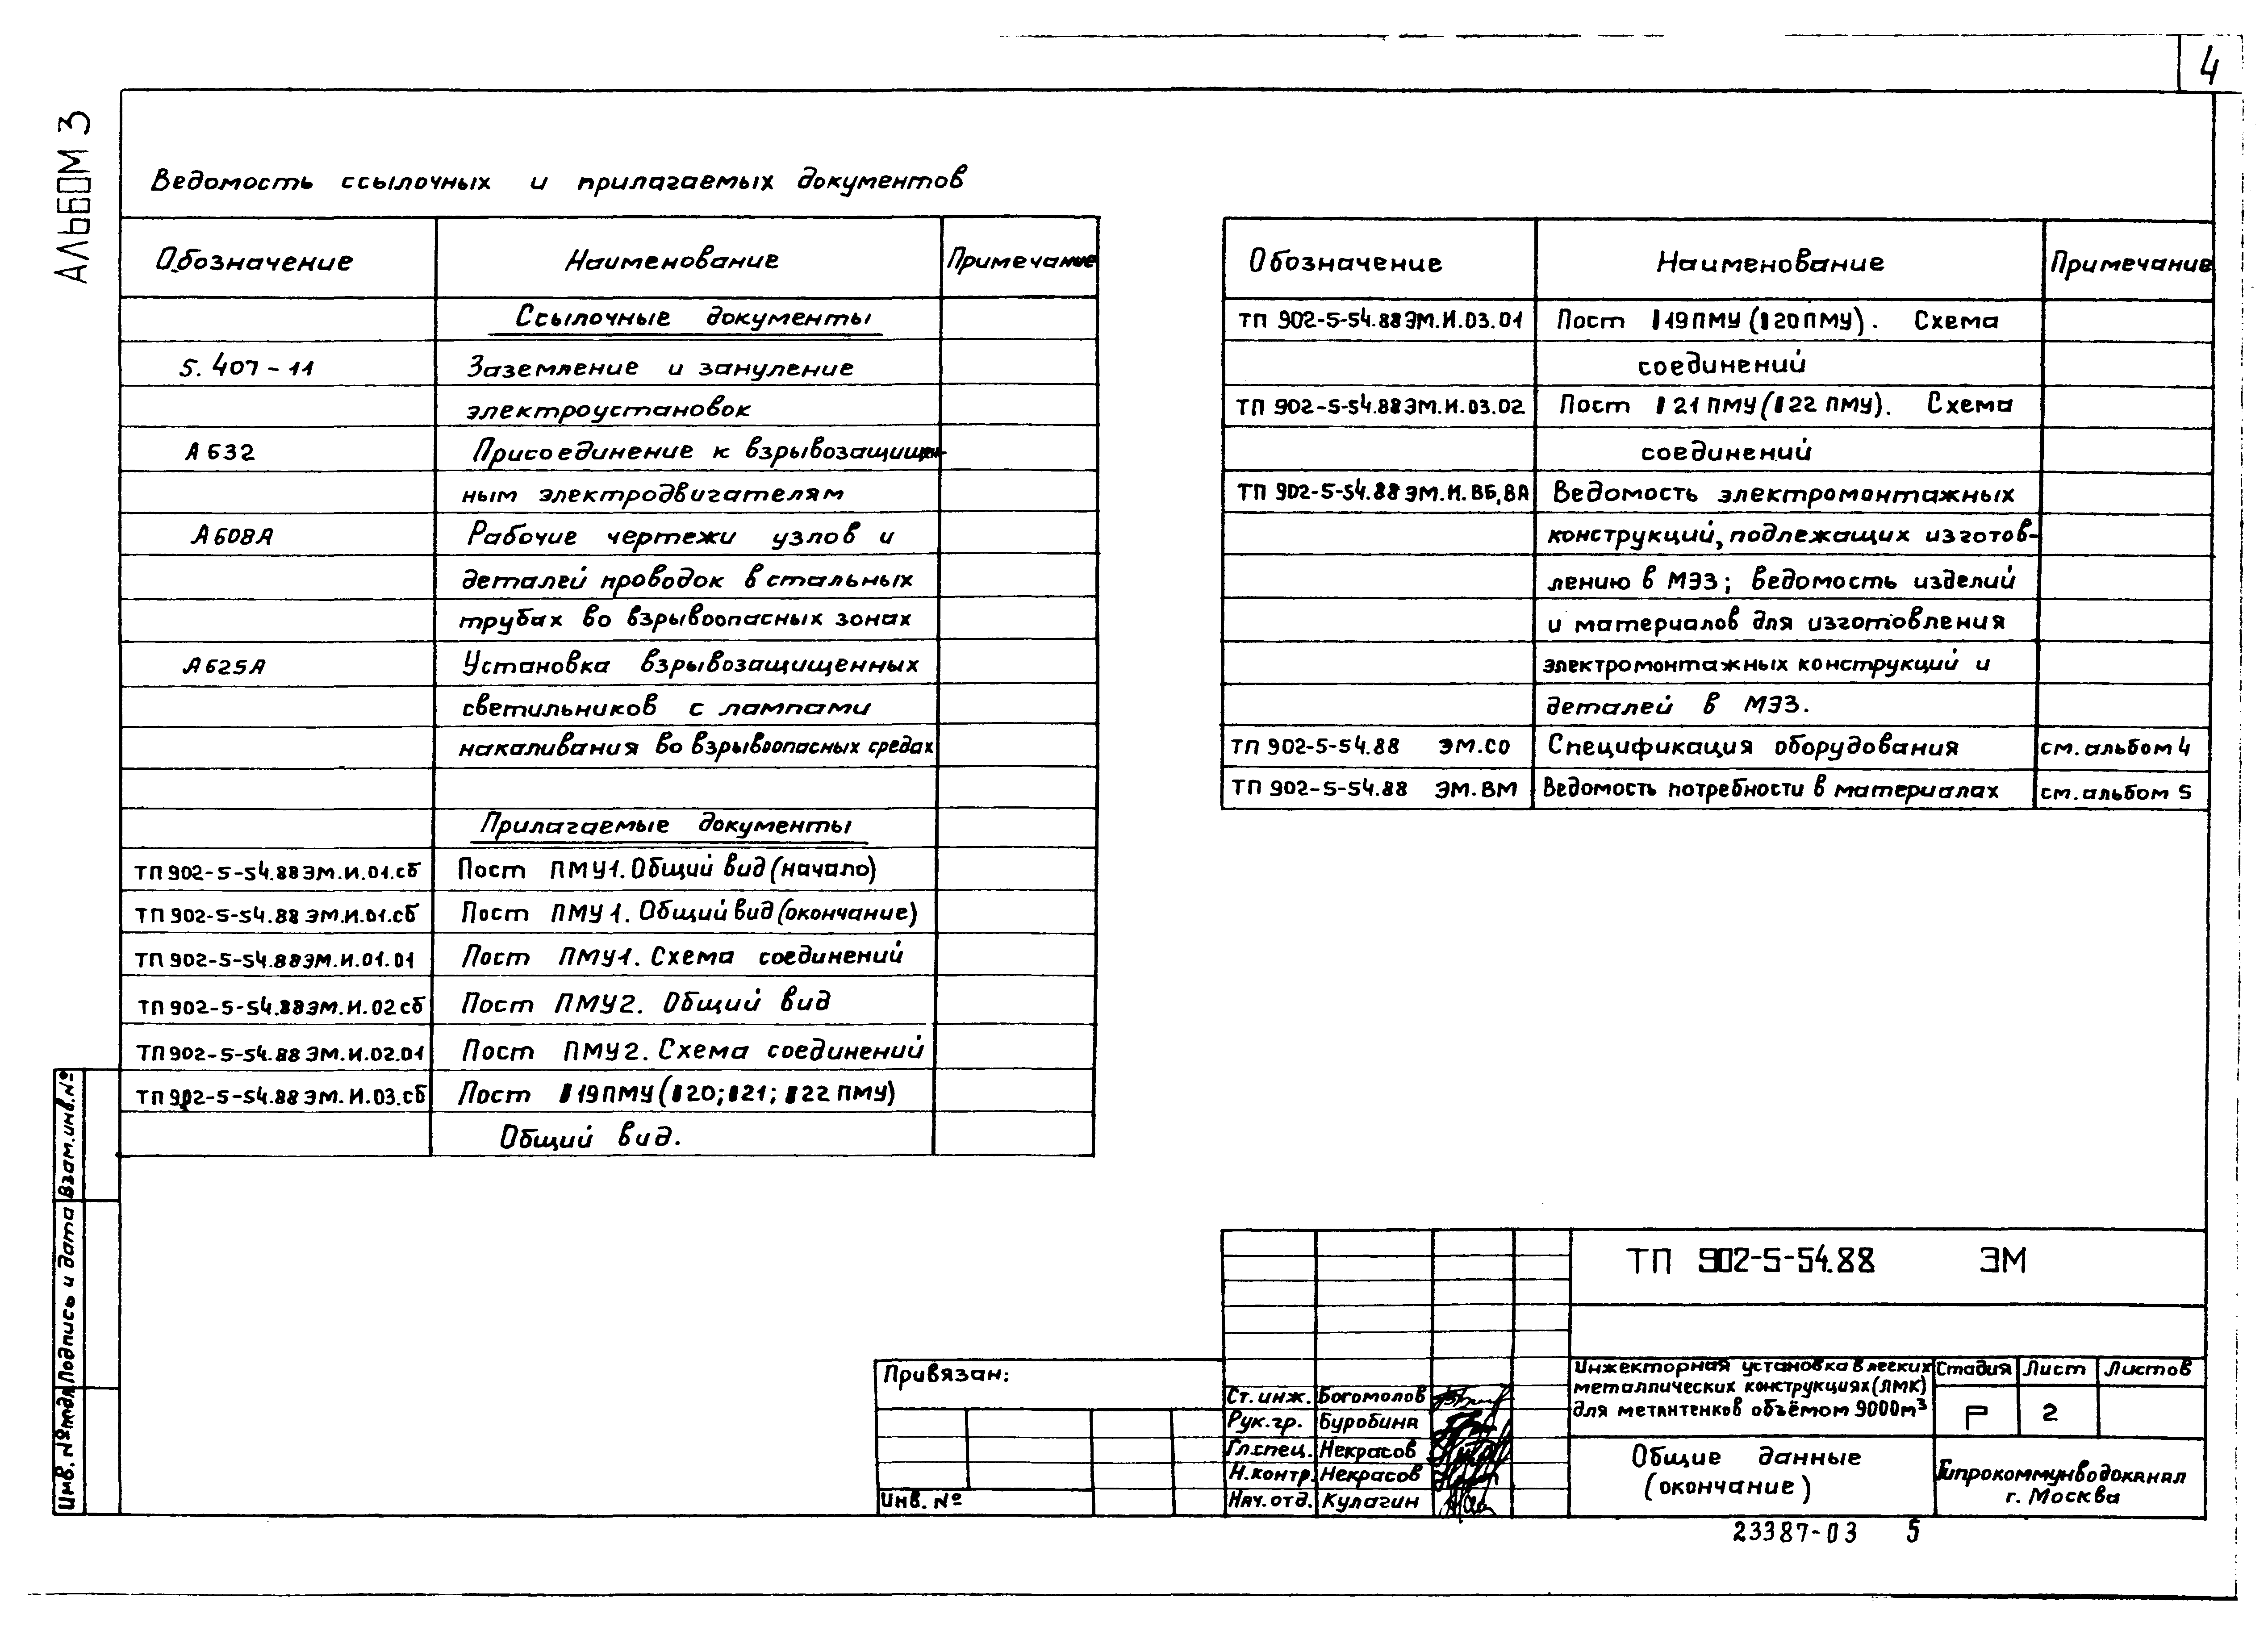 4
АЛЬБОМ 3
Ведомость ссылочных и прилагаемых документов
Обозначение Наименование Примечание
Ссылочные документы
5.407-11 Заземление и зануление
электроустановок
А632 Присоединение к взрывозащищен-
ным электродвигателям
А608А Рабочие чертежи узлов и
деталей проводок в стальных
трубах во взрывоопасных зонах
А625А Установка взрывозащищенных
светильников с лампами
накаливания во взрывоопасных средах
Прилагаемые документы
ТП 902-5-54.88 ЭМ.И.01.сб Пост ПМУ1. Общий вид (начало)
ТП 902-5-54.88 ЭМ.И.01.сб Пост ПМУ1. Общий вид (окончание)
ТП 902-5-54.88 ЭМ.И.01.01 Пост ПМУ1. Схема соединений
ТП 902-5-54.88 ЭМ.И.02 сб Пост ПМУ2. Общий вид
ТП 902-5-54.88 ЭМ.И.02.01 Пост ПМУ2. Схема соединений
ТП 902-5-54.88 ЭМ.И.03.сб Пост 19ПМУ (20; 21; 22 ПМУ)
Общий вид.
Обозначение Наименование Примечание
ТП 902-5-54.88 ЭМ.И.03.01 Пост 19ПМУ (20ПМУ). Схема
соединений
ТП 902-5-54.88 ЭМ.И.03.02 Пост 21 ПМУ (22 ПМУ). Схема
соединений
ТП 902-5-54.88 ЭМ.И.ВБ,ВА Ведомость электромонтажных
конструкций, подлежащих изготов-
лению в МЭЗ; ведомость изделий
и материалов для изготовления
электромонтажных конструкций и
деталей в МЭЗ.
ТП 902-5-54.88 ЭМ.СО Спецификация оборудования см. альбом 4
ТП 902-5-54.88 ЭМ.ВМ Ведомость потребности в материалах см. альбом 5
Взам.инв.№
Подпись и дата
Инв.№подл.
Привязан:
Инв. №
Ст.инж. Богомолов
Рук.гр. Буробина
Гл.спец. Некрасов
Н.контр. Некрасов
Нач.отд. Кулагин
ТП 902-5-54.88 ЭМ
Инжекторная установка в легких
металлических конструкциях (ЛМК)
для метантенков объёмом 9000м³
Стадия Лист Листов
Р 2
Общие данные
(окончание)
Гипрокоммунводоканал
г. Москва
23387-03 5